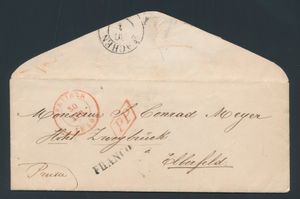 AACHEN
Monsieur Conrad Meyer
Hôtel Zweybrück
PP
FRANCO
à
Elberfeld
Prusse